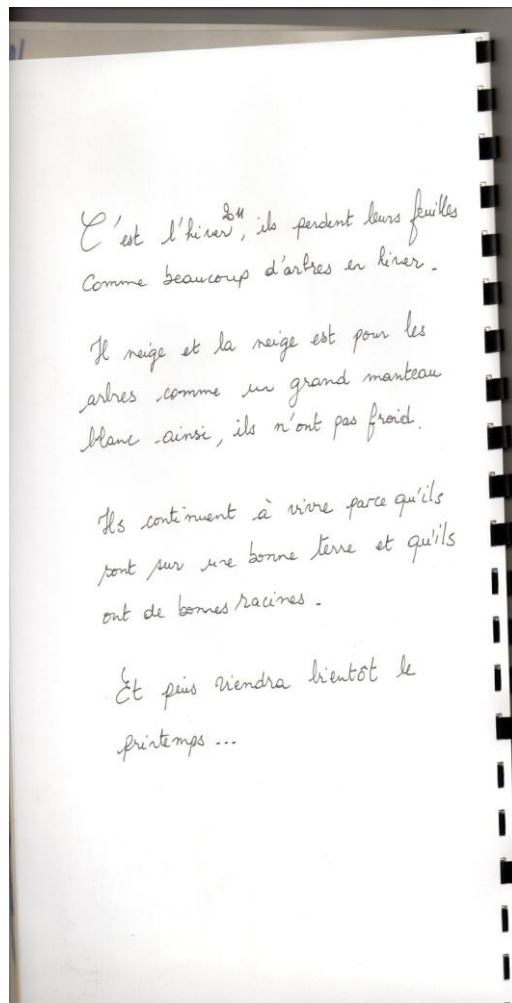 C'est l'hiver 2011, ils perdent leurs feuilles
comme beaucoup d'arbres en hiver.
Il neige et la neige est pour les
arbres comme un grand manteau
blanc ainsi, ils n'ont pas froid.
Ils continuent à vivre parce qu'ils
sont sur une bonne terre et qu'ils
ont de bonnes racines.
Et puis viendra bientôt le
printemps...